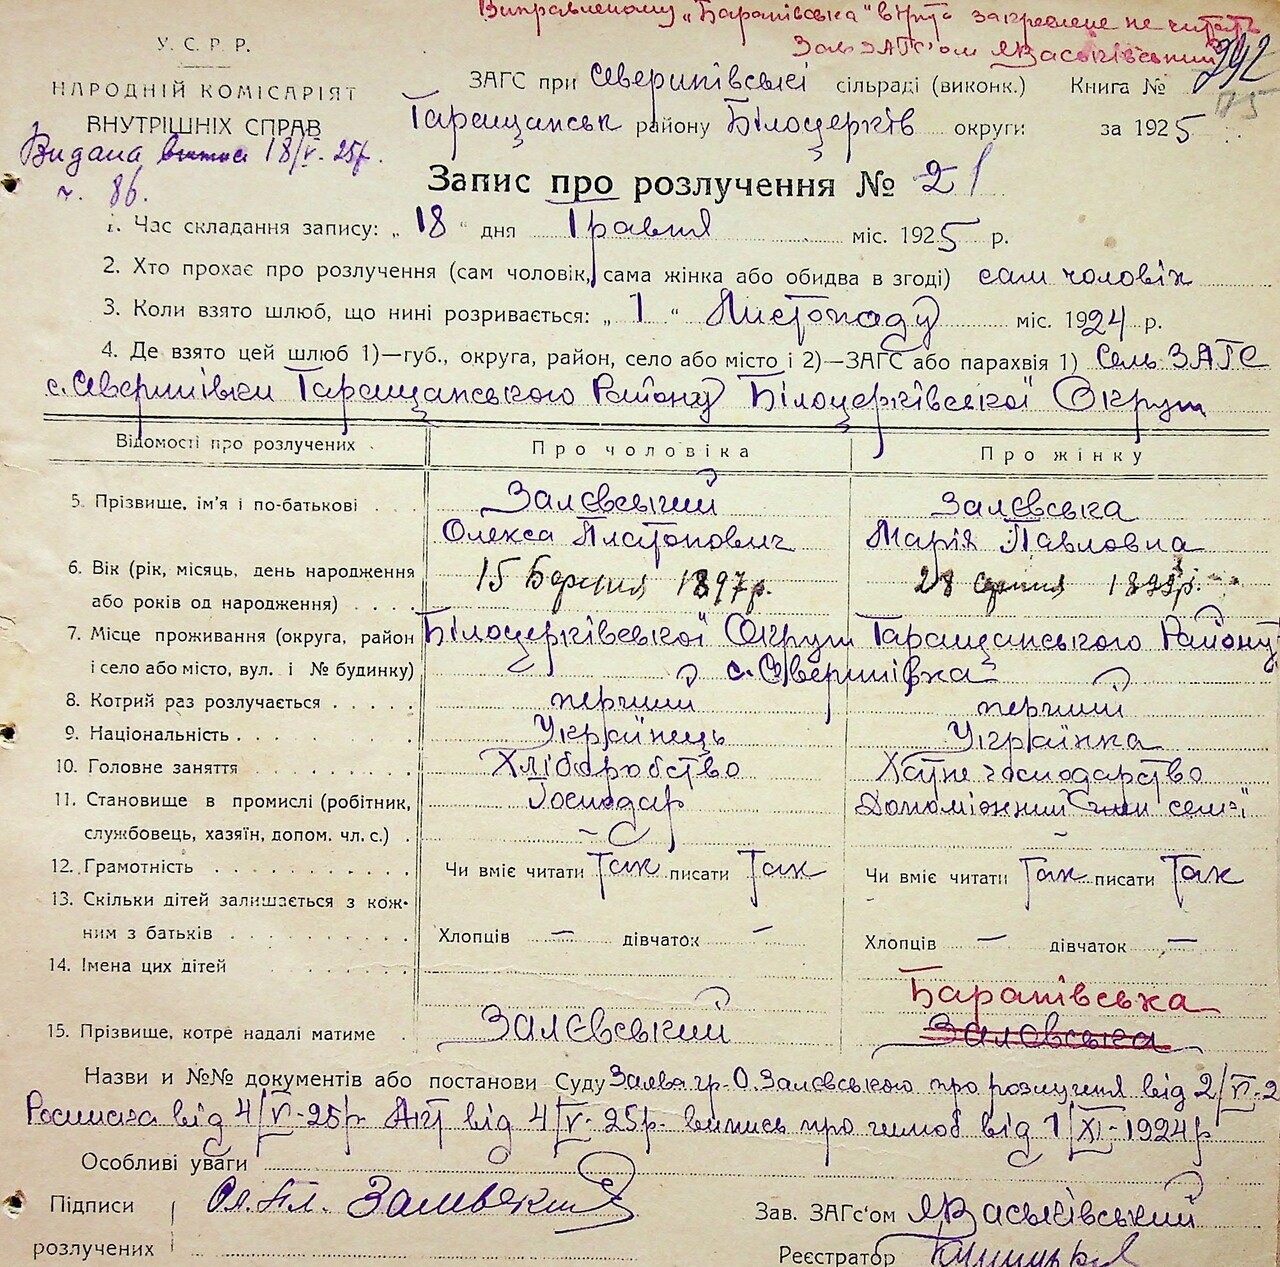 Виправленому „Барапівська" вірить закреслене не читать
Зав ЗАГС'ом ЯВаськівський
У. С. Р. Р.
НАРОДНІЙ КОМІСАРІЯТ
ВНУТРІШНІХ СПРАВ
Видана 18/V-25р.
ч. 86.
ЗАГС при Северинівські сільраді (виконк.) Книга №
Таращанськ району Білоцерків округи за 1925
Запис про розлучення № 21
1. Час складання запису: „18" дня Травня міс. 1925 р.
2. Хто прохає про розлучення (сам чоловік, сама жінка або обидва в згоді) сам чоловік
3. Коли взято шлюб, що нині розривається: „1" Листопаду міс. 1924 р.
4. Де взято цей шлюб 1)—губ., округа, район, село або місто і 2)—ЗАГС або парахвія 1) Сель ЗАГС
с. Северинівки Таращанського Району Білоцерківської Округи
Відомості про розлучених Про чоловіка Про жінку
5. Прізвище, ім'я і по-батькові Залєвський Залєвська
Олекса Платонович Марія Павловна
6. Вік (рік, місяць, день народження 15 Березня 1897р. 28 серпня
або років од народження)
7. Місце проживання (округа, район Білоцерківської Округи Таращанського Району
і село або місто, вул. і № будинку) с. Северинівка
8. Котрий раз розлучається перший перший
9. Національність Українець Українка
10. Головне заняття Хліборобство Хатнє господарство
11. Становище в промислі (робітник, Господар Допоміжний член сем'ї
службовець, хазяїн, допом. чл. с.)
12. Грамотність Чи вміє читати Так писати Так Чи вміє читати Так писати Так
13. Скільки дітей залишається з кож-
ним з батьків Хлопців — дівчаток — Хлопців — дівчаток —
14. Імена цих дітей
Барапівська
15. Прізвище, котре надалі матиме Залєвський Залєвська
Назви и №№ документів або постанови Суду Заява гр. О. Залєвського про розлучення від 2/VI-2
Росписка від 4/V-25р. Акт від 4/V-25р. випись про шлюб від 1/XI-1924р
Особливі уваги
Підписи Ол. Пл. Залевский Зав. ЗАГс'ом ЯВаськівський
розлучених Реєстратор